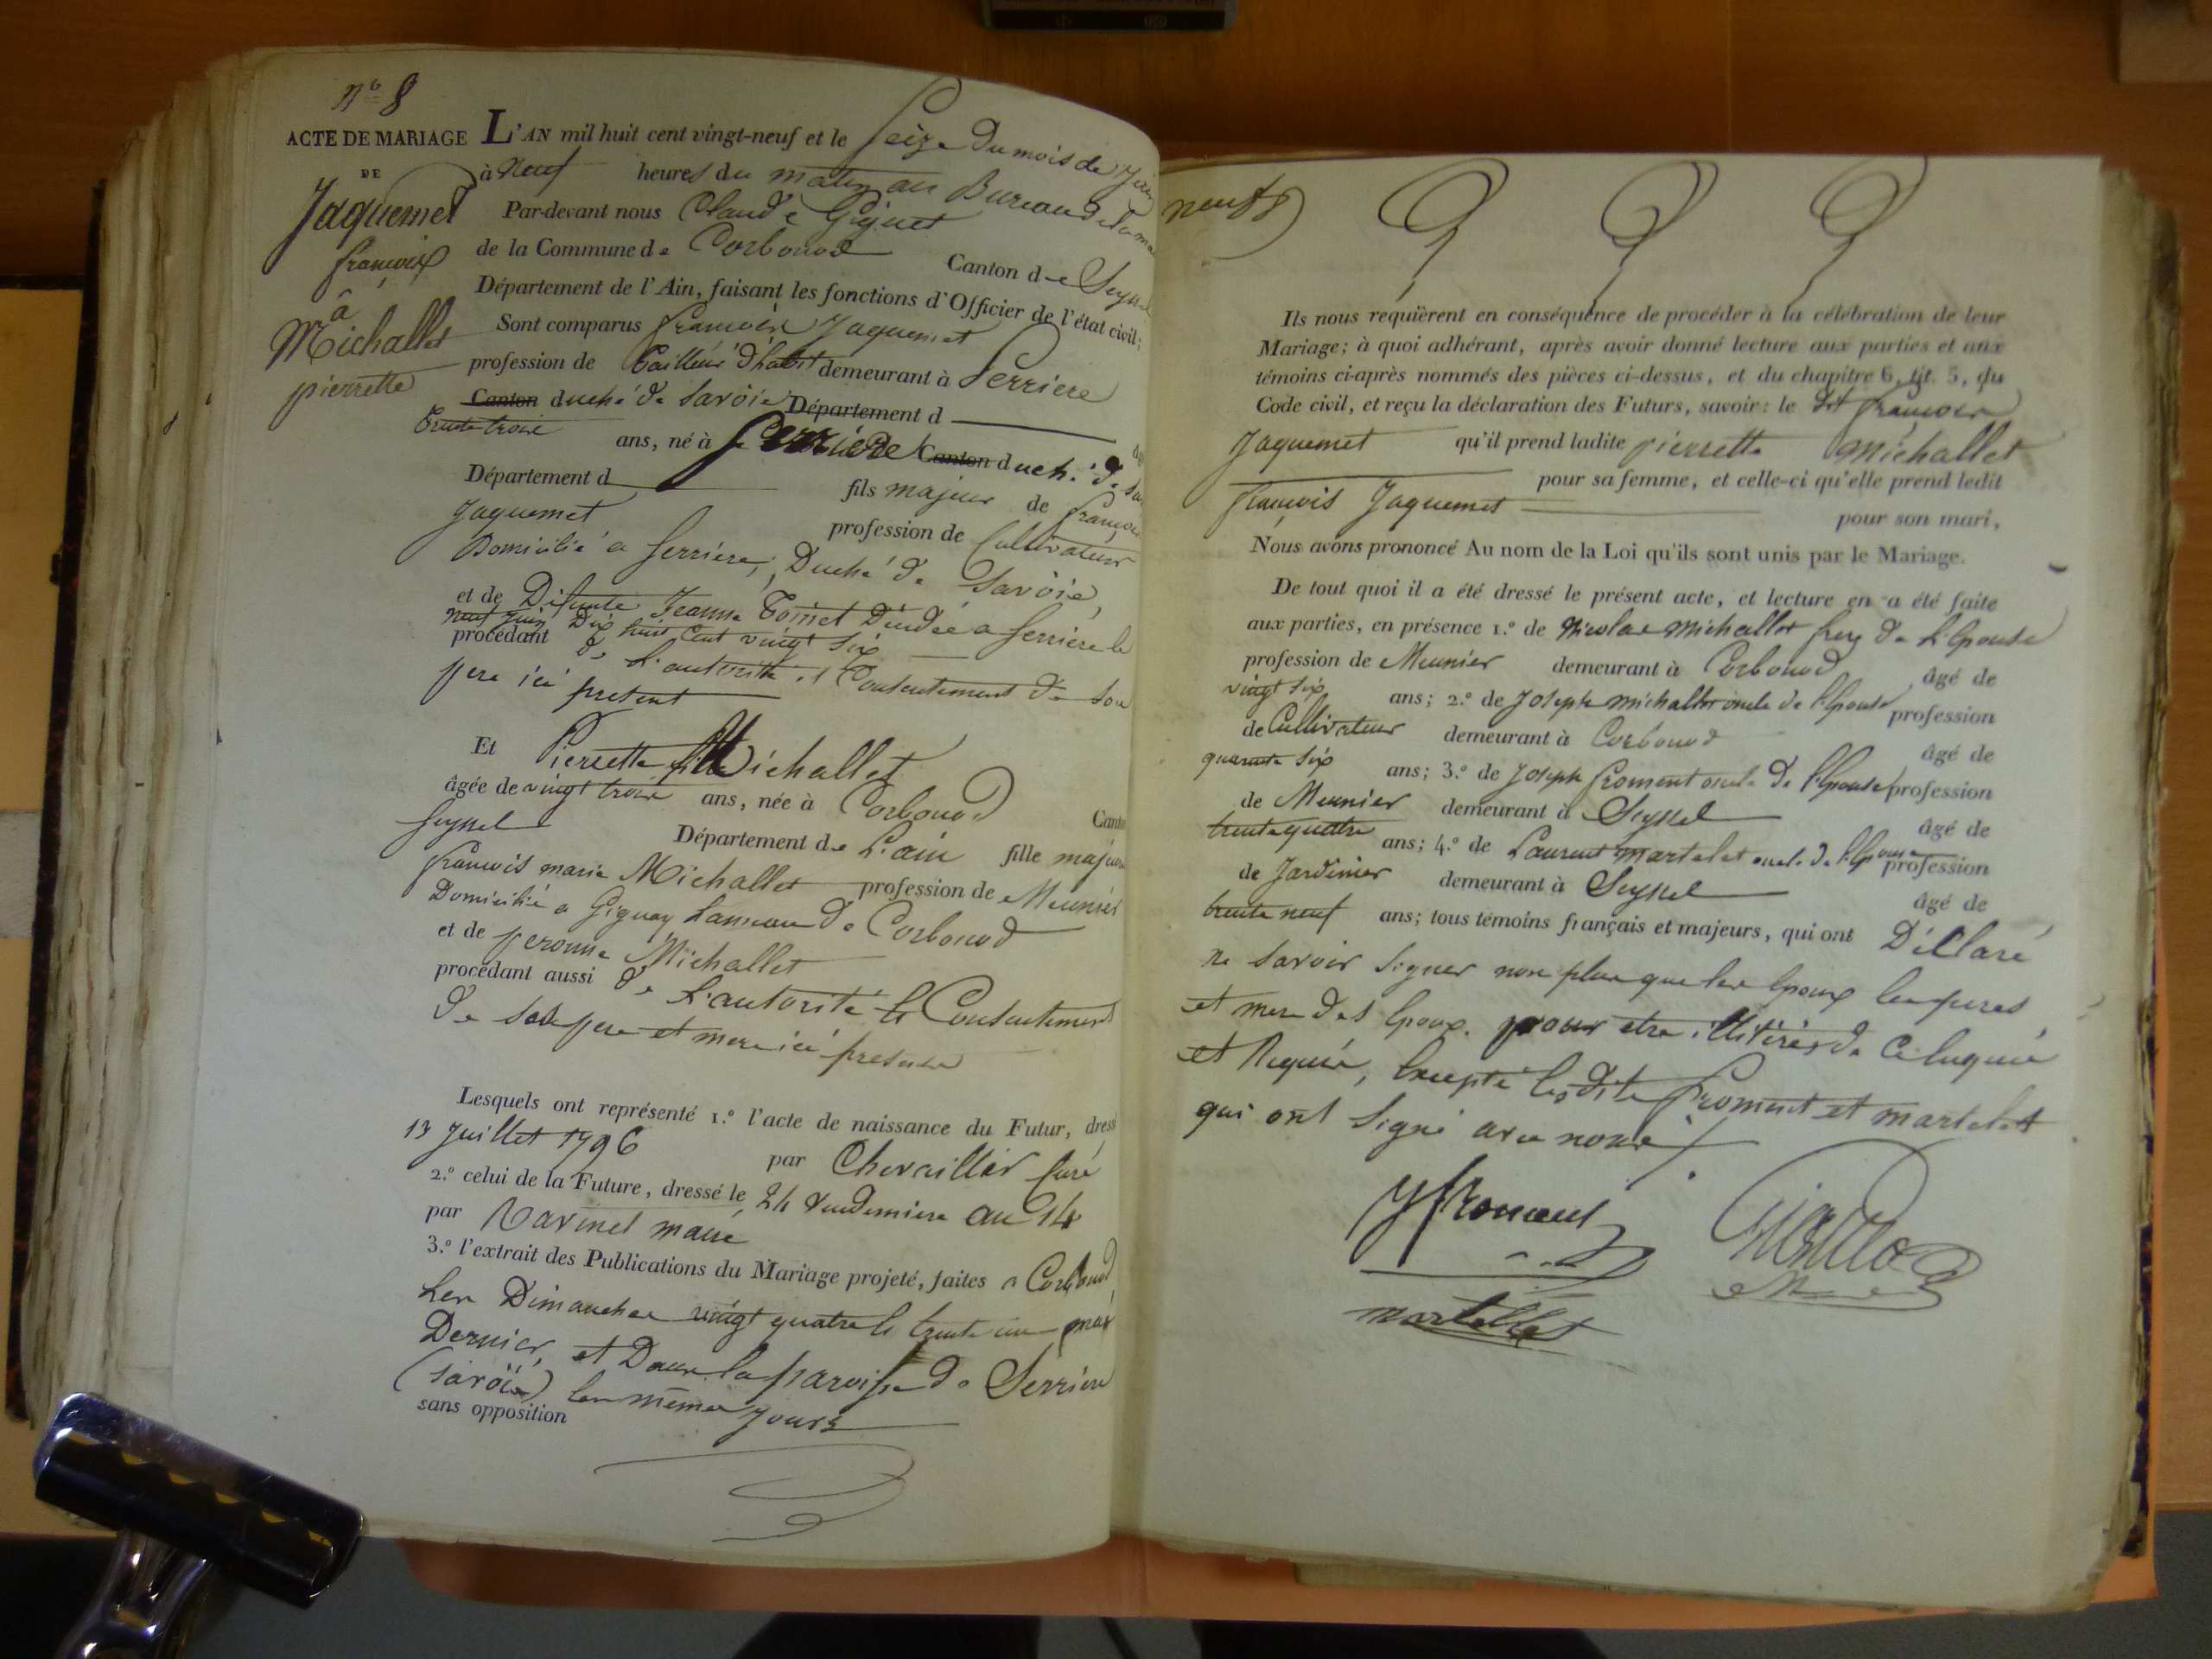 N° 8
ACTE DE MARIAGE
DE
Jaquemet
françois
à
Michallet
pierrette
L'AN mil huit cent vingt-neuf et le Seize du mois de
à Neuf heures du matin au Bureau de la
Par-devant nous Claude Giguet
de la Commune de Corbonod Canton de Seyssel
Département de l'Ain, faisant les fonctions d'Officier de l'état civil;
Sont comparus françois Jaquemet
profession de Tailleur d'habit demeurant à Serriere
Canton duché de Savoie Département d
trente trois ans, né à Serriere Canton duché de
Département d fils majeur de françois
Jaquemet profession de Cultivateur
Domicilié a Serriere, Duché de Savoie,
et de Défunte Jeanne Toinet Décédée a Serriere le
neuf juin Dix huit Cent vingt six
procédant de L'autorité et Consentement de son
pere ici present
Et Pierrette Michallet
âgée de vingt trois ans, née à Corbonod Canton
Seyssel Département de L'ain fille majeure
francois marie Michallet profession de Meunier
Domicilié a Gignay hameau de Corbonod
et de peronne Michallet
procédant aussi de L'autorité et Consentement
de ses pere et mere ici presents
Lesquels ont représenté 1.° l'acte de naissance du Futur, dressé
13 Juillet 1796 par Chevaillier Curé
2.° celui de la Future, dressé le 24 Vendemiere an 14
par Ravinel maire
3.° l'extrait des Publications du Mariage projeté, faites a Corbonod
Les Dimanches vingt quatre et trente un mai
Dernier, et Dans la paroisse de Serriere
(Savoie) les mêmes jours
sans opposition
Ils nous requièrent en conséquence de procéder à la célébration de leur
Mariage; à quoi adhérant, après avoir donné lecture aux parties et aux
témoins ci-après nommés des pièces ci-dessus, et du chapitre 6, tit. 5, du
Code civil, et reçu la déclaration des Futurs, savoir: le dit françois
Jaquemet qu'il prend ladite pierrette Michallet
pour sa femme, et celle-ci qu'elle prend ledit
françois Jaquemet pour son mari,
Nous avons prononcé Au nom de la Loi qu'ils sont unis par le Mariage.
De tout quoi il a été dressé le présent acte, et lecture en a été faite
aux parties, en présence 1.° de Nicolas Michallet frere de L'Epouse
profession de Meunier demeurant à Corbonod âgé de
vingt six ans; 2.° de Joseph Michallet oncle de l'Epouse profession
de Cultivateur demeurant à Corbonod âgé de
quarante six ans; 3.° de Joseph froment oncle de l'Epouse profession
de Meunier demeurant à Seyssel âgé de
trente quatre ans; 4.° de Laurent martelet oncle de l'Epouse profession
de Jardinier demeurant à Seyssel âgé de
trente neuf ans; tous témoins français et majeurs, qui ont Déclaré
ne savoir signer non plus que les Epoux les peres
et mere des Epoux. pour etre illitérés de ce enquis
et Requis, Excepté lesdits froment et martelet
qui ont signé avec nous
Jfroment
martellet